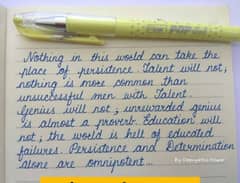 Nothing in this world can take the
place of persistence. Talent will not;
nothing is more common than
unsuccessful men with Talent.
Genius will not; unrewarded genius
is almost a proverb. Education will
not; the world is full of educated
failures. Persistence and Determination
alone are omnipotent...